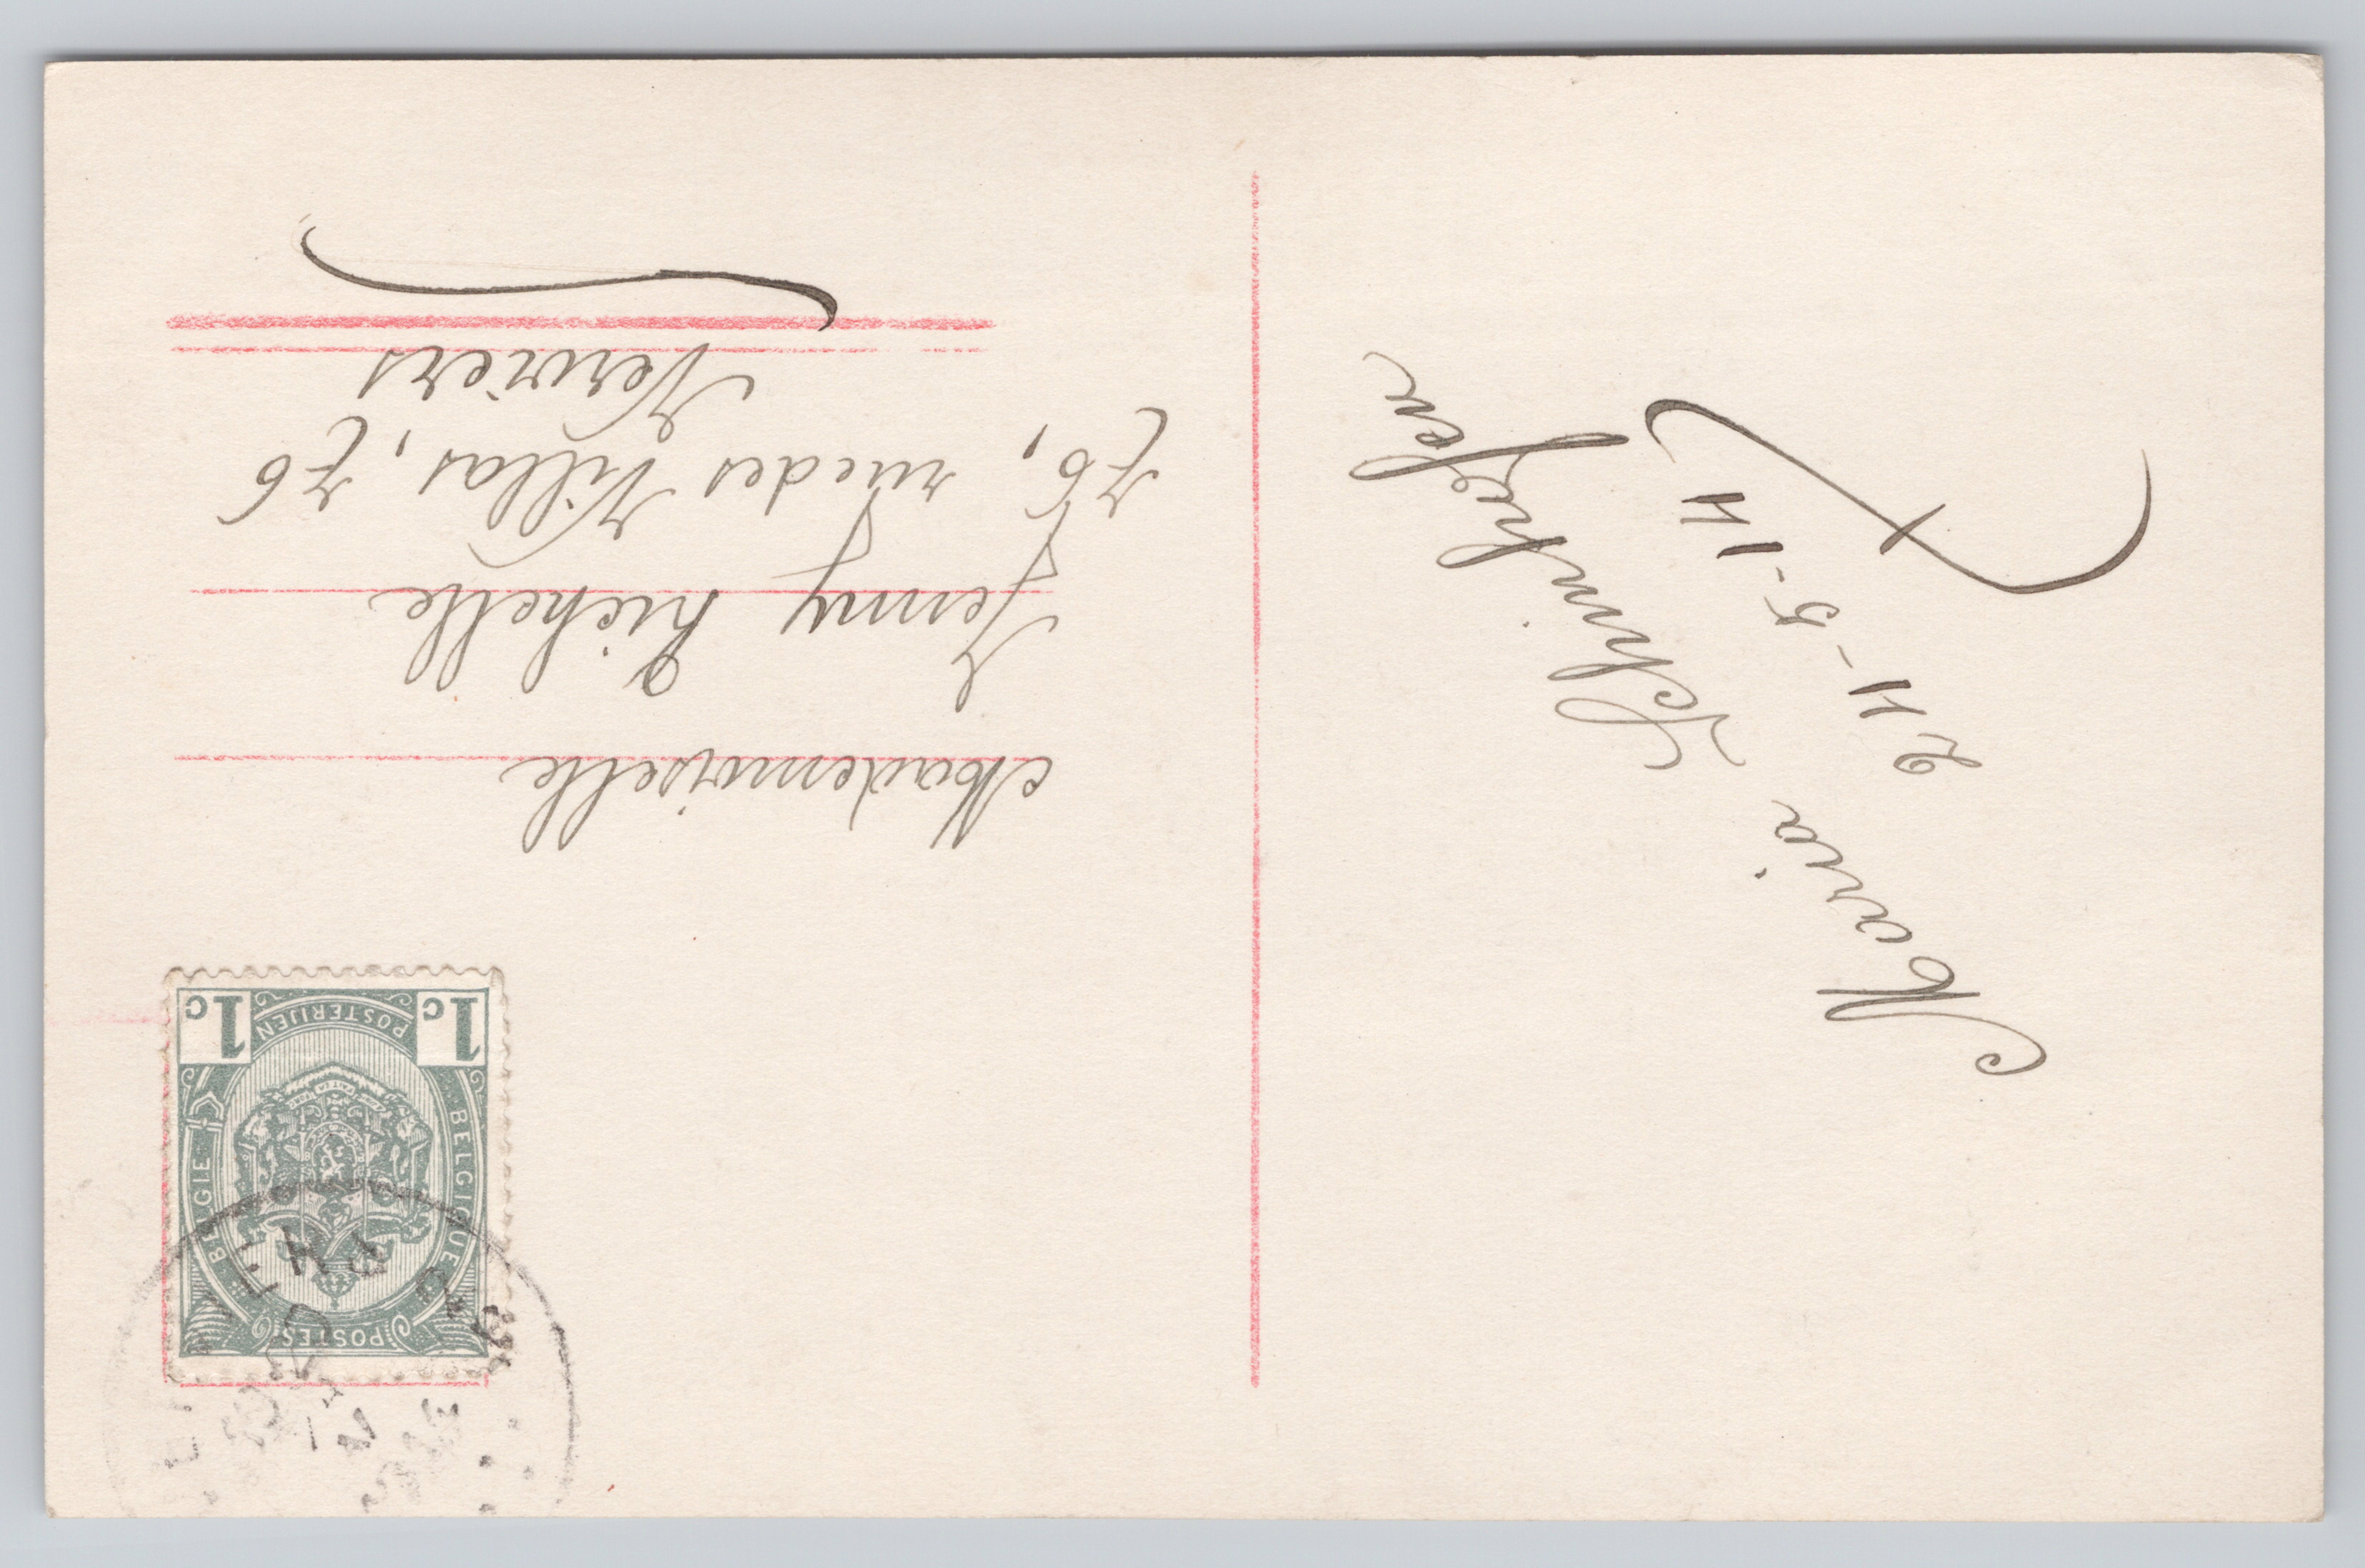 Maria Schinhofen
24-5-14
POSTES
BELGIQUE
BELGIE
1c
POSTERIJEN
1c
Mademoiselle
Jenny Richelle
76, rue des Villas, 76
Verviers